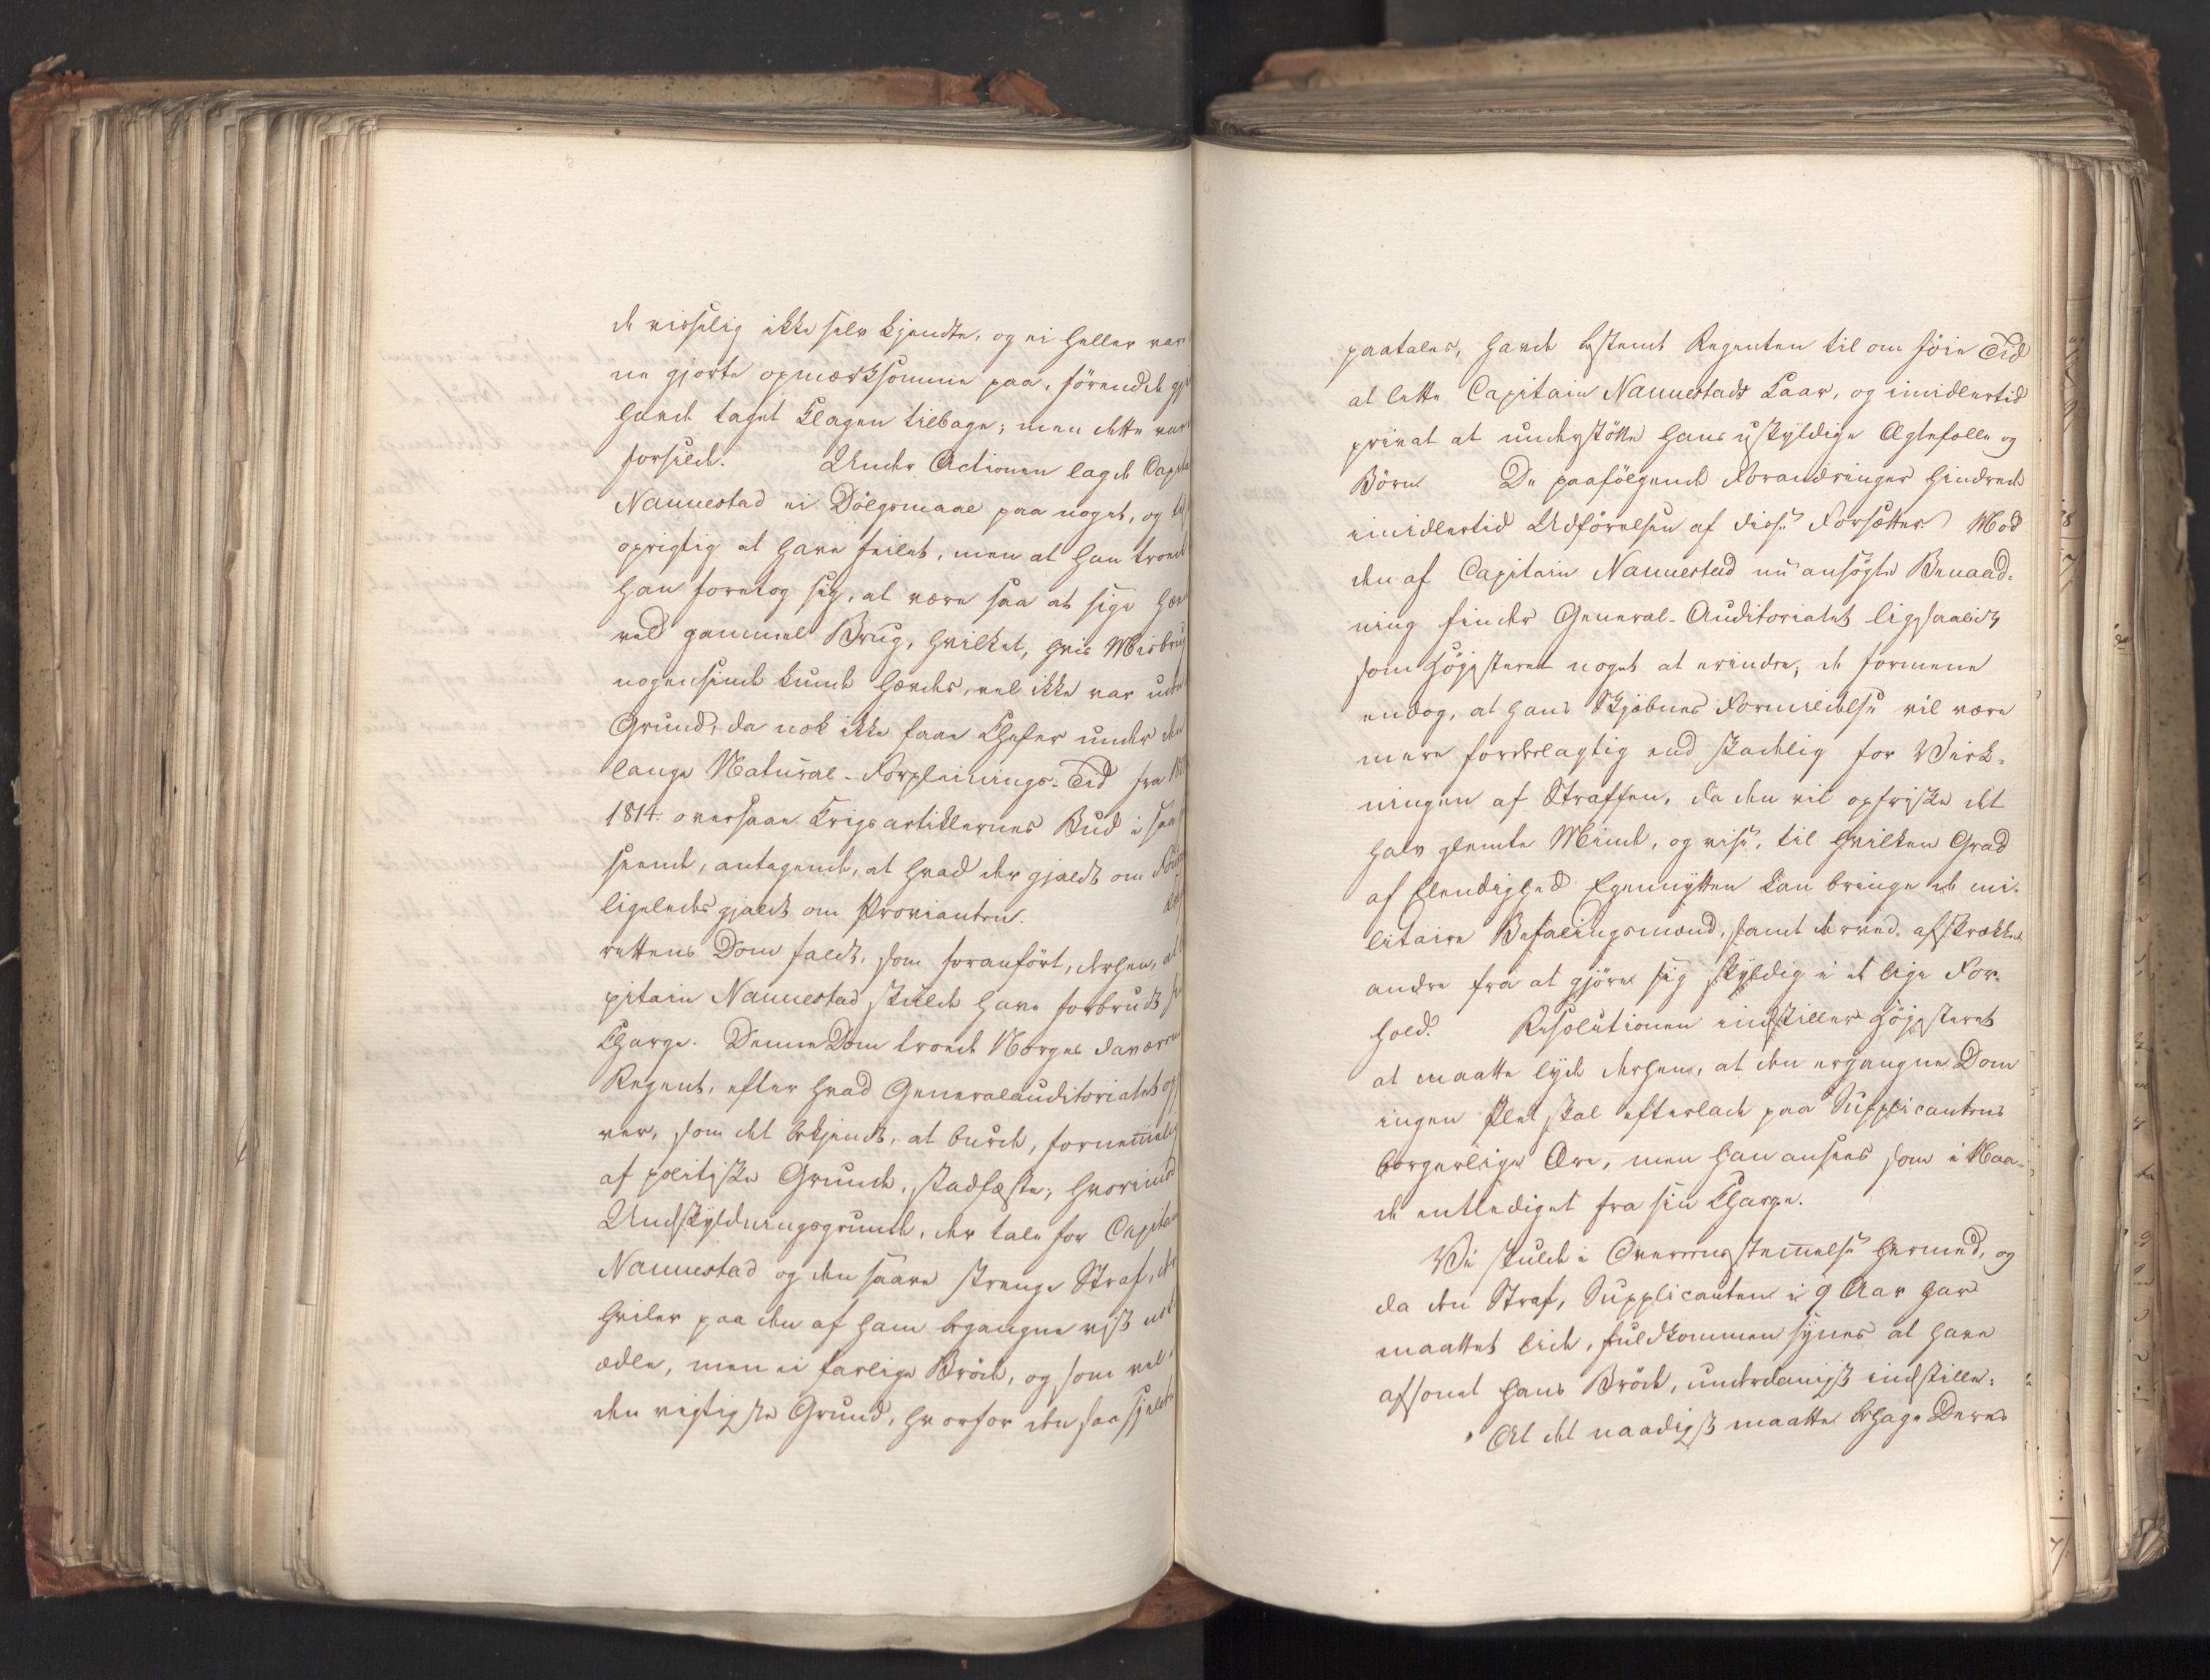 de visselig ikke selv kjendte, og ei heller var
ne gjorte opmærksomme paa, førendde
havde taget Klagen tilbage; men dette var
forsilde. Under Actionen lagde Capit
Nannestad ei Dölgsmaal paa noget, og
oprigtig at have feilet, men at han troede
han foretog sig, at være saa at sige hæv
ved gammel Brug, hvilket, hvis Misbrug
nogensinde kunde hævdes, vel ikke var uden
Grund, da nok ikke faae Chefer under den
lange Natural-Forpleinings-Tid fra 18
1814. oversaae Krigsartiklernes Bud i saa
seende, antagende, at hvad der gjaldt om
ligeledes gjaldt om Provianten.
rettens Dom faldt, som foranfört, derhen, at
pitain Nannestad skulde have forbrudt
Charge. Denne Dom troede Norges daværen
Regent, efter hvad Generalauditoriatet
ver, som det bekjendt, at burde, fornem̅elig
af politiske Grunde, stadfæste; hvorimod
Undskyldningsgrunde, der tale for Capitain
Nannestad og den saare strenge Straf, der
hviler paa den af ham begangne vist
ædle, men ei farlige Bröde, og som vel
den vigtigste Grund, hvorfor den saa sjelden
paatales, havde bestemt Regenten til om föie Tid
at lette Capitain Nannestads Kaar, og imidlertid
privat at understötte hans uskyldige Ægtefolle og
Börn. De paafölgende Forandringer hindrede
imidlertid Udförelsen af disse Forsætter. Mod
den af Capitain Nannestad nu ansögte Benaad-
ning finder General-Auditoriatet ligesaalidt
som Höjesteret noget at erindre; de formene
endog, at hans Skjæbnes Formildelse vil være
mere fordelagtig end skadelig for Virk-
ningen af Straffen, da den vil opfriske det
halv glemte Minde, og vise, til hvilken Grad
af Elendighed Egennytten kan bringe de mi-
litaire Befalingsmænd, samt derved afskrække
andre fra at gjöre sig skyldig i et lige For-
hold. Resolutionen indstiller Höjesteret
at maatte lyde derhen, at den ergangne Dom
ingen Plet skal efterlade paa Supplicantens
borgerlige Ære, men han ansees som i Naa-
de entlediget fra sin Charge.
Vi skulde i Overeensstem̅else hermed, og
da den Straf, Supplicanten i 9 Aar har
maattet lide, fuldkommen synes at have
afsonet hans Bröde, underdanigst indstille:
At det naadigst maatte behage Deres